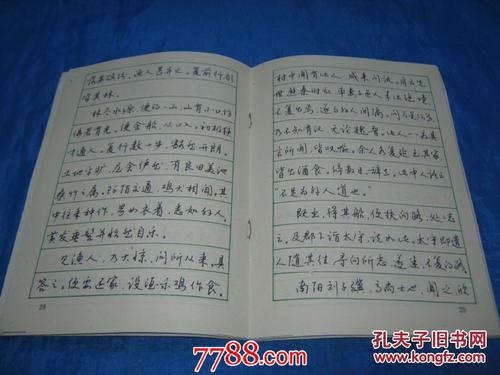 落英缤纷，渔人甚异之。复前行，欲
穷其林。
林尽水源，便得一山，山有小口，仿
佛若有光。便舍船，从口入。初极狭，才
通人。复行数十步，豁然开朗。
土地平旷，屋舍俨然，有良田美池
桑竹之属。阡陌交通，鸡犬相闻。其
中往来种作，男女衣着，悉如外人。
黄发垂髫，并怡然自乐。
见渔人，乃大惊，问所从来。具
答之。便要还家，设酒杀鸡作食。
28
村中闻有此人，咸来问讯。自云先
世避秦时乱，率妻子邑人来此绝境，
不复出焉，遂与外人间隔。问今是何世，
乃不知有汉，无论魏晋。此人一一为具
言所闻，皆叹惋。余人各复延至其家，
皆出酒食。停数日，辞去。此中人语云：
“不足为外人道也。”
既出，得其船，便扶向路，处处志
之。及郡下，诣太守，说如此。太守即遣
人随其往，寻向所志，遂迷，不复得路。
南阳刘子骥，高尚士也，闻之，欣
29
7788.com
孔夫子旧书网
www.kongfz.com